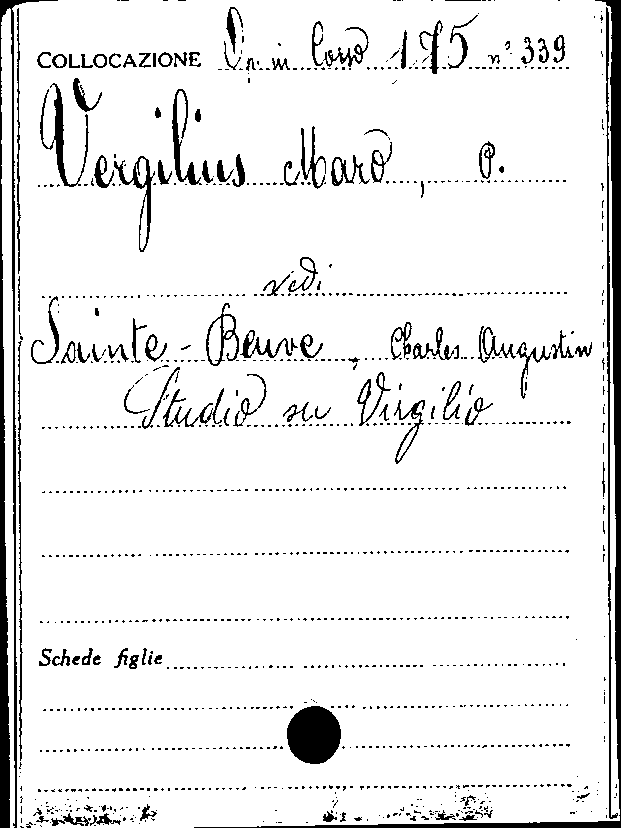 COLLOCAZIONE Op. in Corso 175 n° 339
Vergilius Maro, P.
vedi
Sainte-Beuve, Charles Augustin
Studio su Virgilio
Schede figlie